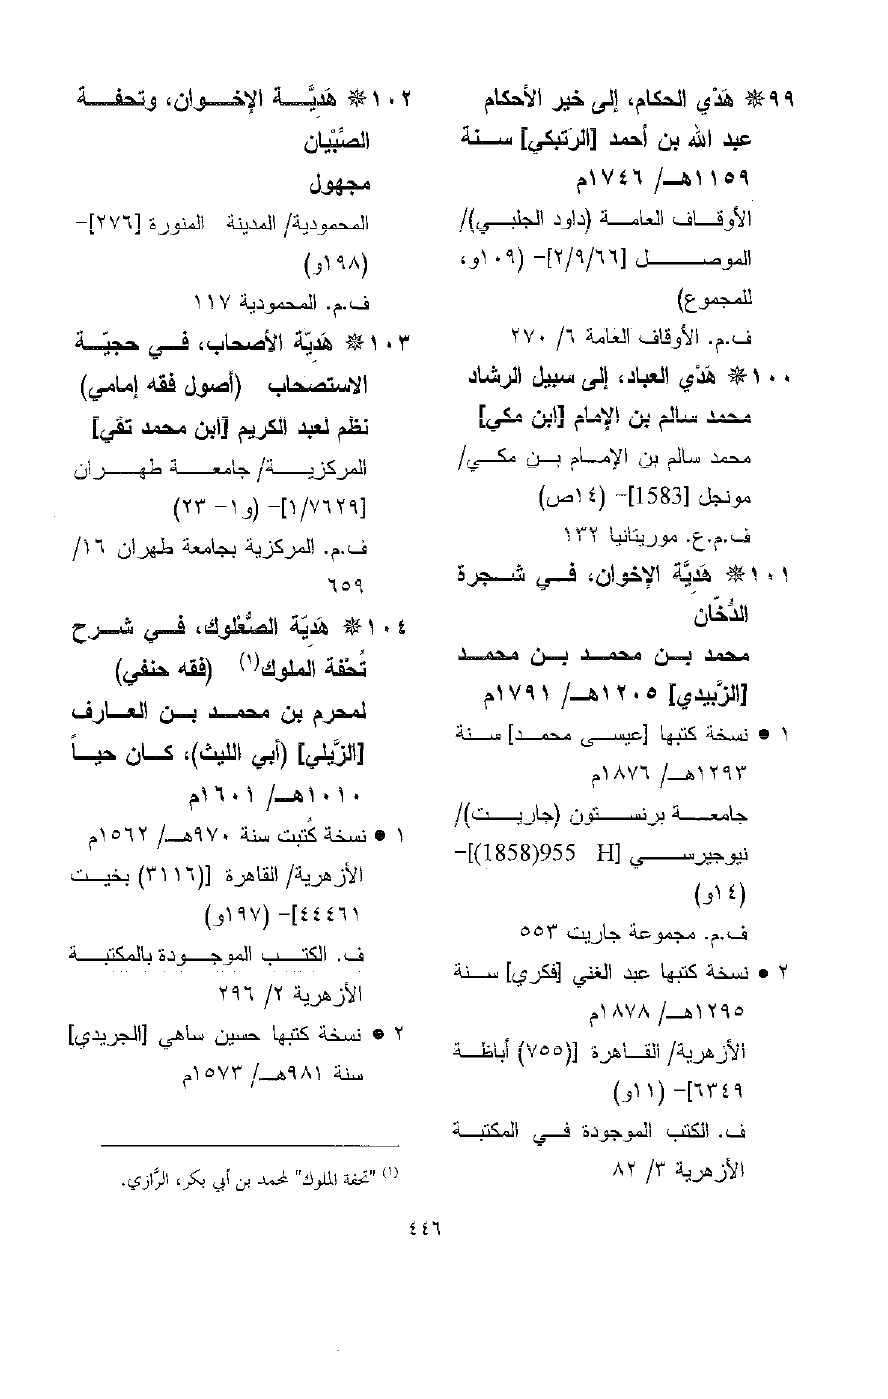 ٩٩ ❋ هَدْي الحكام، إلى خير الأحكام
عبد الله بن أحمد [الرَتبكي] سنة
١١٥٩هـ/ ١٧٤٦م
الأوقاف العامة (داود الجلبي)/
الموصل [٢/٩/٦٦]- (١٠٩و،
للمجموع)
ف.م. الأوقاف العامة ٦/ ٢٧٠
١٠٠ ❋ هَدْي العباد، إلى سبيل الرشاد
محمد سالم بن الإمام [ابن مكي]
محمد سالم بن الإمام بن مكي/
مونجل [1583]- (١٤ص)
ف.م.ع. موريتانيا ١٣٢
١٠١ ❋ هَدِيَّة الإخوان، في شجرة
الدُّخّان
محمد بن محمد بن محمد
[الزَّبيدي] ١٢٠٥هـ/ ١٧٩١م
١ • نسخة كتبها [عيسى محمد] سنة
١٢٩٣هـ/ ١٨٧٦م
جامعة برنستون (جاريت)/
نيوجيرسي [H 955(1858)]-
(١٤و)
ف.م. مجموعة جاريت ٥٥٣
٢ • نسخة كتبها عبد الغني [فكري] سنة
١٢٩٥هـ/ ١٨٧٨م
الأزهرية/ القاهرة [(٧٥٥) أباظة
٦٣٤٩]- (١١و)
ف. الكتب الموجودة في المكتبة
الأزهرية ٣/ ٨٢
١٠٢ ❋ هَدِيَّة الإخوان، وتحفة
الصِّبْيَان
مجهول
المحمودية/ المدينة المنورة [٢٧٦]-
(١٩٨و)
ف.م. المحمودية ١١٧
١٠٣ ❋ هَدِيّة الأصحاب، في حجيّة
الاستصحاب (أصول فقه إمامي)
نظم لعبد الكريم [ابن محمد تقي]
المركزية/ جامعة طهران
[١/٧٦٢٩]- (و١- ٢٣)
ف.م. المركزية بجامعة طهران ١٦/
٦٥٩
١٠٤ ❋ هَدِيّة الصُّعْلوك، في شرح
تُحْفة الملوك(١) (فقه حنفي)
لمحرم بن محمد بن العارف
[الزَّيلي] (أبي الليث)، كان حياً
١٠١٠هـ/ ١٦٠١م
١ • نسخة كُتبت سنة ٩٧٠هـ/ ١٥٦٢م
الأزهرية/ القاهرة [(٣١١٦) بخيت
٤٤٤٦١]- (١٩٧و)
ف. الكتب الموجودة بالمكتبة
الأزهرية ٢/ ٢٩٦
٢ • نسخة كتبها حسين ساهي [الجريدي]
سنة ٩٨١هـ/ ١٥٧٣م
(١) "تحفة الملوك" لمحمد بن أبي بكر، الرَّازي.
٤٤٦